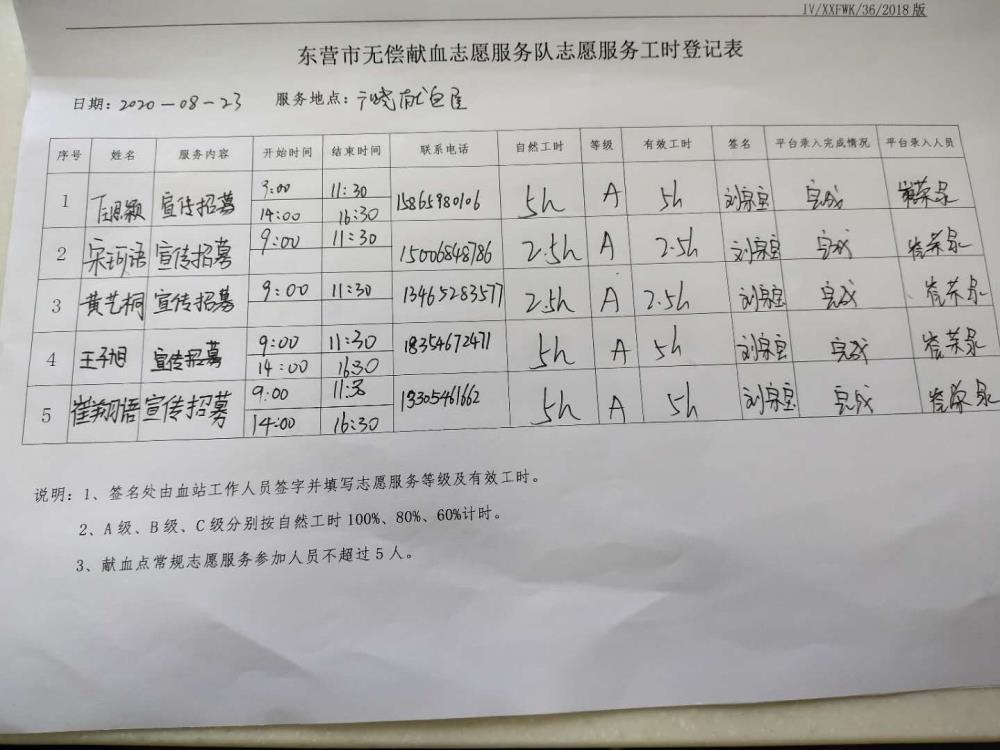 IV/XXFWK/36/2018版
东营市无偿献血志愿服务队志愿服务工时登记表
日期：2020-08-23 服务地点：献血屋
序号 姓名 服务内容 开始时间 结束时间 联系电话 自然工时 等级 有效工时 签名 平台录入完成情况 平台录入人员
1 任恩颖 宣传招募 9:00 11:30 15865980106 5h A 5h 刘宗宝 完成 崔荣泉
14:00 16:30
2 宋珂语 宣传招募 9:00 11:30 15006848786 2.5h A 2.5h 刘宗宝 完成 崔荣泉
3 黄艺桐 宣传招募 9:00 11:30 13465283577 2.5h A 2.5h 刘宗宝 完成 崔荣泉
4 王子旭 宣传招募 9:00 11:30 18354672471 5h A 5h 刘宗宝 完成 崔荣泉
14:00 16:30
5 崔翔语 宣传招募 9:00 11:30 13305461662 5h A 5h 刘宗宝 完成 崔荣泉
14:00 16:30
说明：1、签名处由血站工作人员签字并填写志愿服务等级及有效工时。
2、A级、B级、C级分别按自然工时100%、80%、60%计时。
3、献血点常规志愿服务参加人员不超过5人。